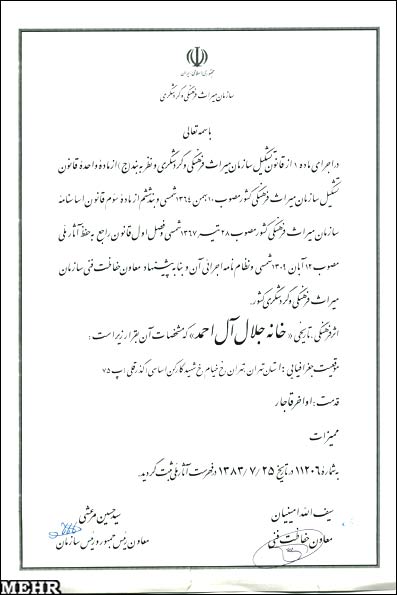 جمهوری اسلامی ایران
سازمان میراث فرهنگی و گردشگری
باسمه تعالی
در اجرای ماده ۱ از قانون تشکیل سازمان میراث فرهنگی و گردشگری و نظر به بند(ج) از ماده واحدهٔ قانون
تشکیل سازمان میراث فرهنگی کشور مصوب ۱۰ بهمن ۱۳۶۴ شمسی و بند ششم از مادهٔ سوم قانون اساسنامهٔ
سازمان میراث فرهنگی کشور مصوب ۲۸ تیر ۱۳۶۷ شمسی و فصل اول قانون راجع به حفظ آثار ملی
مصوب ۱۲ آبان ۱۳۰۹ شمسی و نظام نامه اجرایی آن و بنا به پیشنهاد معاون حفاظت فنی سازمان
میراث فرهنگی و گردشگری کشور.
اثر فرهنگی ـ تاریخی «خانه جلال آل احمد» که مشخصات آن بقرار زیر است:
موقعیت جغرافیایی: استان تهران، تهران، خ خیام، خ شهید کارکن اساسی، گذر قلی، پ ۷۵
قدمت: اواخر قاجار
ممیزات
به شمارهٔ ۱۱۲۰۶ در تاریخ ۱۳۸۳/۷/۲۵ در فهرست آثار ملی ثبت گردید.
سیف الله امینیان
معاون حفاظت فنی
سید حسین مرعشی
معاون رئیس جمهور و رئیس سازمان
MEHR